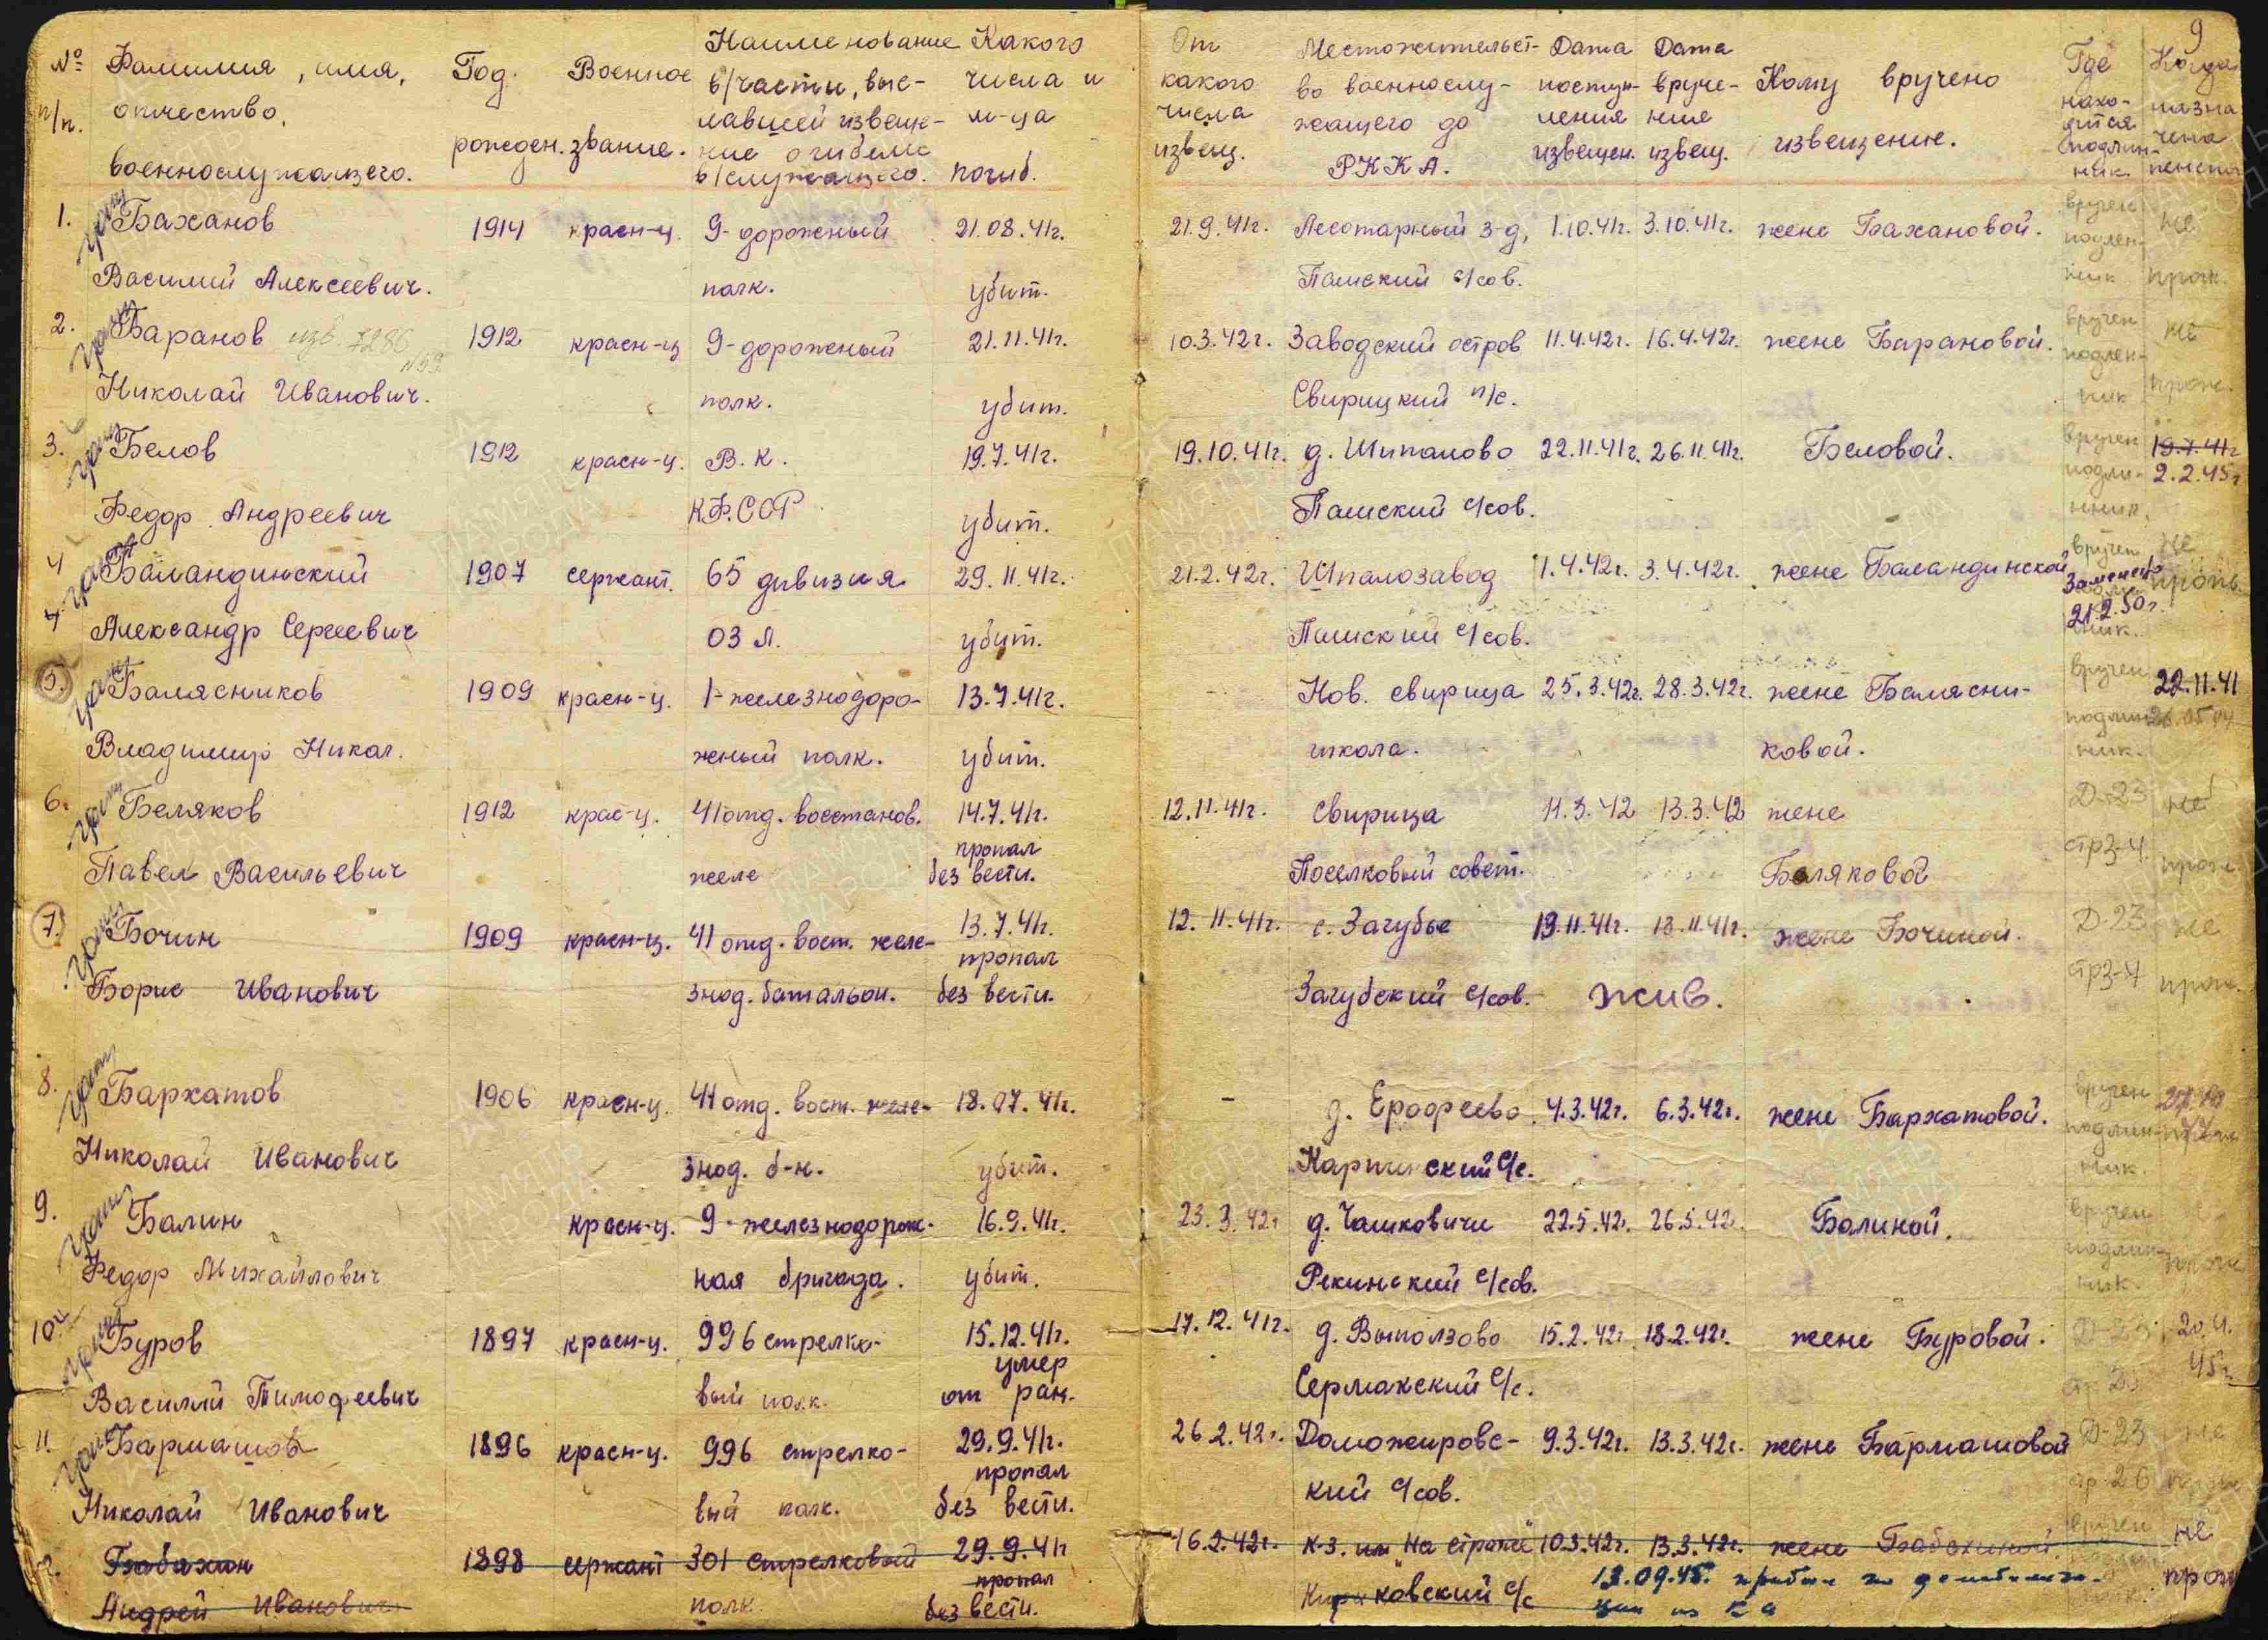 9
№ п/п.
Фамилия, имя, отчество, военнослужащего.
Год рожден.
Военное звание.
Наименование в/части, выславшей извещение о гибели в/служащего.
Какого числа и м-ца погиб.
От какого числа извещ.
Местожительство военнослужащего до РККА.
Дата поступления извещен.
Дата вручение извещ.
Кому вручено извещение.
Где находится подлинник
Когда назначена пенсия
1. Баханов 1914 красн-ц. 9-дорожный 21.08.41г. 21.9.41г. Лесотарный з-д, 1.10.41г. 3.10.41г. жене Бахановой. вручен не
Василий Алексеевич. полк. убит. Пашский с/сов. подленник прож.
2. Баранов изв. 7286 1912 красн-ц 9-дорожный 21.11.41г. 10.3.42г. Заводский остров 11.4.42г. 16.4.42г. жене Барановой. вручен не
Николай Иванович. полк. убит. Свирицкий п/с. подленник прож.
3. Белов 1912 красн-ц. В.К. 19.7.41г. 19.10.41г. д. Шипапово 22.11.41г. 26.11.41г. Беловой. вручен 19.7.41г
Федор Андреевич К.Ф.ССР убит. Пашский с/сов. подлинник. 2.2.45г
4 Баландинский 1907 сержант. 65 дивизия 29.11.41г. 21.2.42г. Шпалозавод 1.4.42г. 3.4.42г. жене Баландинской вручен не
Александр Сергеевич ОЗЛ. убит. Пашский с/сов. Заменено 21.2.50г. прож.
5. Балясников 1909 красн-ц. 1-железнодоро- 13.7.41г. Нов. свирица 25.3.42г. 28.3.42г. жене Балясни- вручен 22.11.41
Владимир Никол. жный полк. убит. школа. ковой. подлинник.
6. Беляков 1912 крас-ц. 41 отд. восстанов. 14.7.41г. 12.11.41г. Свирица 11.3.42 13.3.42 жене Д-23 не
Павел Васильевич желе пропал без вести. Поселковый совет. Беляковой стр3-4 прож.
7. Бочин 1909 красн-ц. 41 отд. вост. желе- 13.7.41г. 12.11.41г. с. Загубье 19.11.41г. 13.11.41г. жене Бочиной. Д-23 не
Борис Иванович знод. батальон. пропал без вести. Загубский с/сов. жив. стр3-4 прож.
8. Бархатов 1906 красн-ц. 41 отд. вост. желе- 18.07.41г. - д. Ерофеево 4.3.42г. 6.3.42г. жене Бархатовой. вручен
Николай Иванович знод. б-н. убит. Карпинский с/с. подлинник.
9. Балин красн-ц. 9-железнодорож- 16.9.41г. 23.3.42г д. Чашковичи 22.5.42г. 26.5.42г. Балиной. вручен
Федор Михайлович ная бригада. убит. Рекинский с/сов. подлинник.
10. Буров 1897 красн-ц. 996 стрелко- 15.12.41г. 17.12.41г. д. Выползово 15.2.42г. 18.2.42г. жене Буровой. Д-23 20.4.
Василий Тимофеевич вый полк. умер от ран. Сермакский с/с. 45г.
11. Бармашов 1896 красн-ц. 996 стрелко- 29.9.41г. 26.2.42г. Доможировс- 9.3.42г. 13.3.42г. жене Бармашовой Д-23 не
Николай Иванович вый полк. пропал без вести. кий с/сов. стр 26
Бабахин 1898 сержант 301 стрелковый 29.9.41 16.2.42г. к-з. им "На страже" 10.3.42г. 13.3.42г. жене Бабахиной. вручен не
Андрей Иванович полк пропал без вести. с/с 13.09.45. прибыл по демобилизации из КА прож